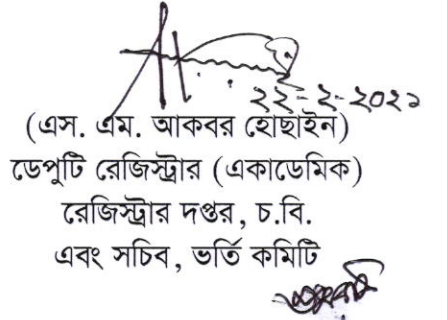 ২২-২-২০২১
(এস. এম. আকবর হোছাইন)
ডেপুটি রেজিস্ট্রার (একাডেমিক)
রেজিস্ট্রার দপ্তর, চ.বি.
এবং সচিব, ভর্তি কমিটি